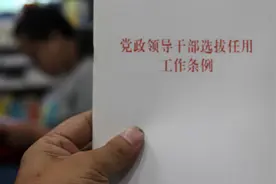 党政领导干部选拔任用
工作条例